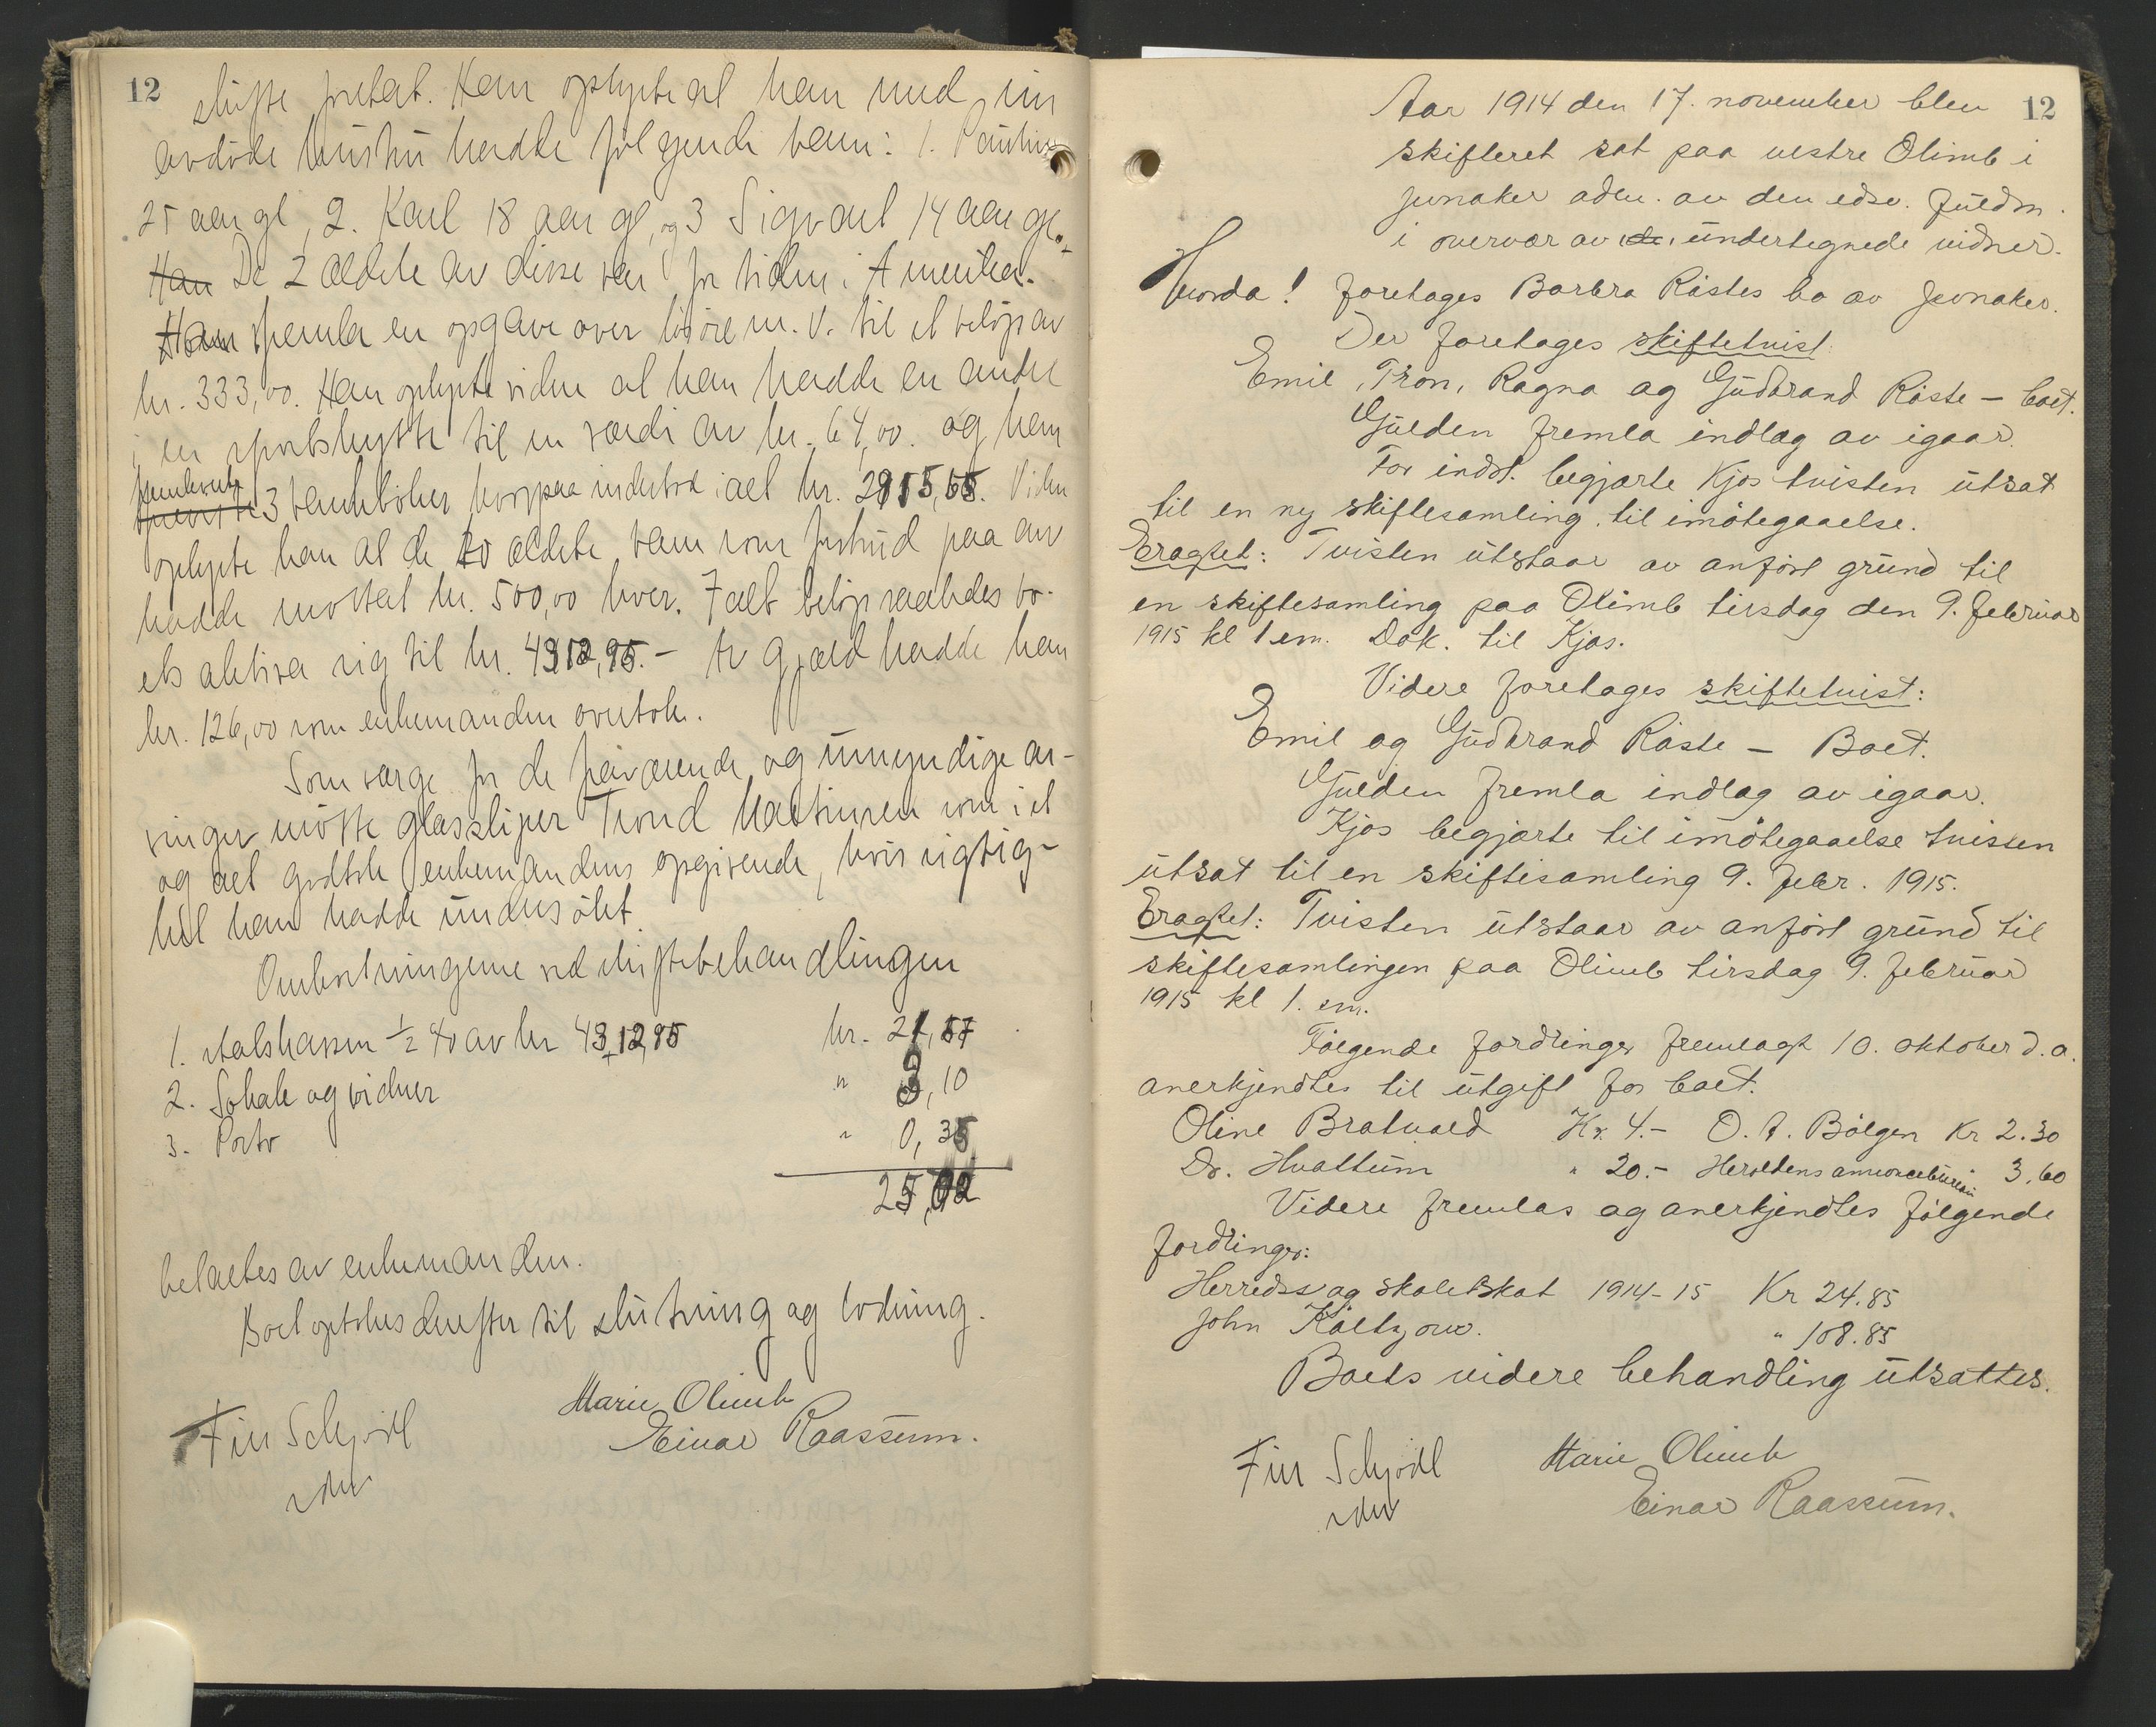 12
skifte foretat. Han oplyste at han med sin
avdöde hustru hadde følgende barn: 1. Pauline
25 aar gl, 2. Karl 18 aar gl, og 3 Sigvart 14 aar gl.
Han De 2 ældste av disse var for tiden i Amerika.
Han fremla en opgave over lösöre m. v. til et belöp av
kr. 333,00. Han oplyste videre at han hadde en andel
i en sportshytte til en værdi av kr. 64,00. og han
fremleverte 3 bankböker hvorpaa indestod ialt kr. 2915,65. Videre
oplyste han at de to ældste barn som forskud paa arv
hadde mottat kr. 500,00 hver. Ialt belöp saaledes bo-
ets aktiva sig til kr. 4312,95.- Av gjæld hadde han
kr. 126,00 som enkemanden overtok.
Som værge for de fraværende og umyndige ar-
vinger mötte glassliper Trond Martinsen som i et
og alt godtok enkemandens opgivende, hvis rigtig-
het han hadde undersökt.
Omkostningerne ved skiftebehandlingen
1. statskassen ½ % av kr 4312,95 kr. 21,57
2. Lokale og vidner " 3,10
3. Porto " 0,35
25,02
betaltes av enkemanden.
Boet optokes derefter til slutning og lodning.
Marie Olimb
Fin Schjödt Einar Raassum.
12
Aar 1914 den 17. november blev
skifteret sat paa vestre Olimb i
Jevnaker adm. av den edsv. fuldm.
i overvær av de undertegnede vidner.
Hvorda! foretages Barbra Råstes bo av Jevnaker.
Der foretages skiftetvist:
Emil, Tron, Ragna og Gudbrand Råste – boet.
Gulden fremla indlæg av igaar.
For indst. begjærte Kjos tvisten utsat
til en ny skiftesamling til imötegaaelse.
Eragtet: Tvisten utstaar av anført grund til
en skiftesamling paa Olimb tirsdag den 9. februar
1915 kl 1 em. Dok. til Kjos.
Videre foretages skiftetvist:
Emil og Gudbrand Råste – Boet.
Gulden fremla indlæg av igaar.
Kjos begjærte til imötegaaelse tvisten
utsat til en skiftesamling 9. febr. 1915.
Eragtet: Tvisten utstaar av anført grund til
skiftesamlingen paa Olimb tirsdag 9. februar
1915 kl 1. em.
Følgende fordringer fremlagt 10. oktober d. a.
anerkjendtes til utgift for boet.
Oline Bratvold Kr. 4.- O. A. Bölgen Kr 2.30
Dr. Hvattum " 20.- Heroldens annoncebureau 3.60
Videre fremlas og anerkjendtes følgende
fordringer:
Herreds og skoleskat 1914-15 Kr 24.85
John Koltzow. " 108.85
Boets videre behandling utsattes.
Fin Schjödt Marie Olimb
Einar Raassum.